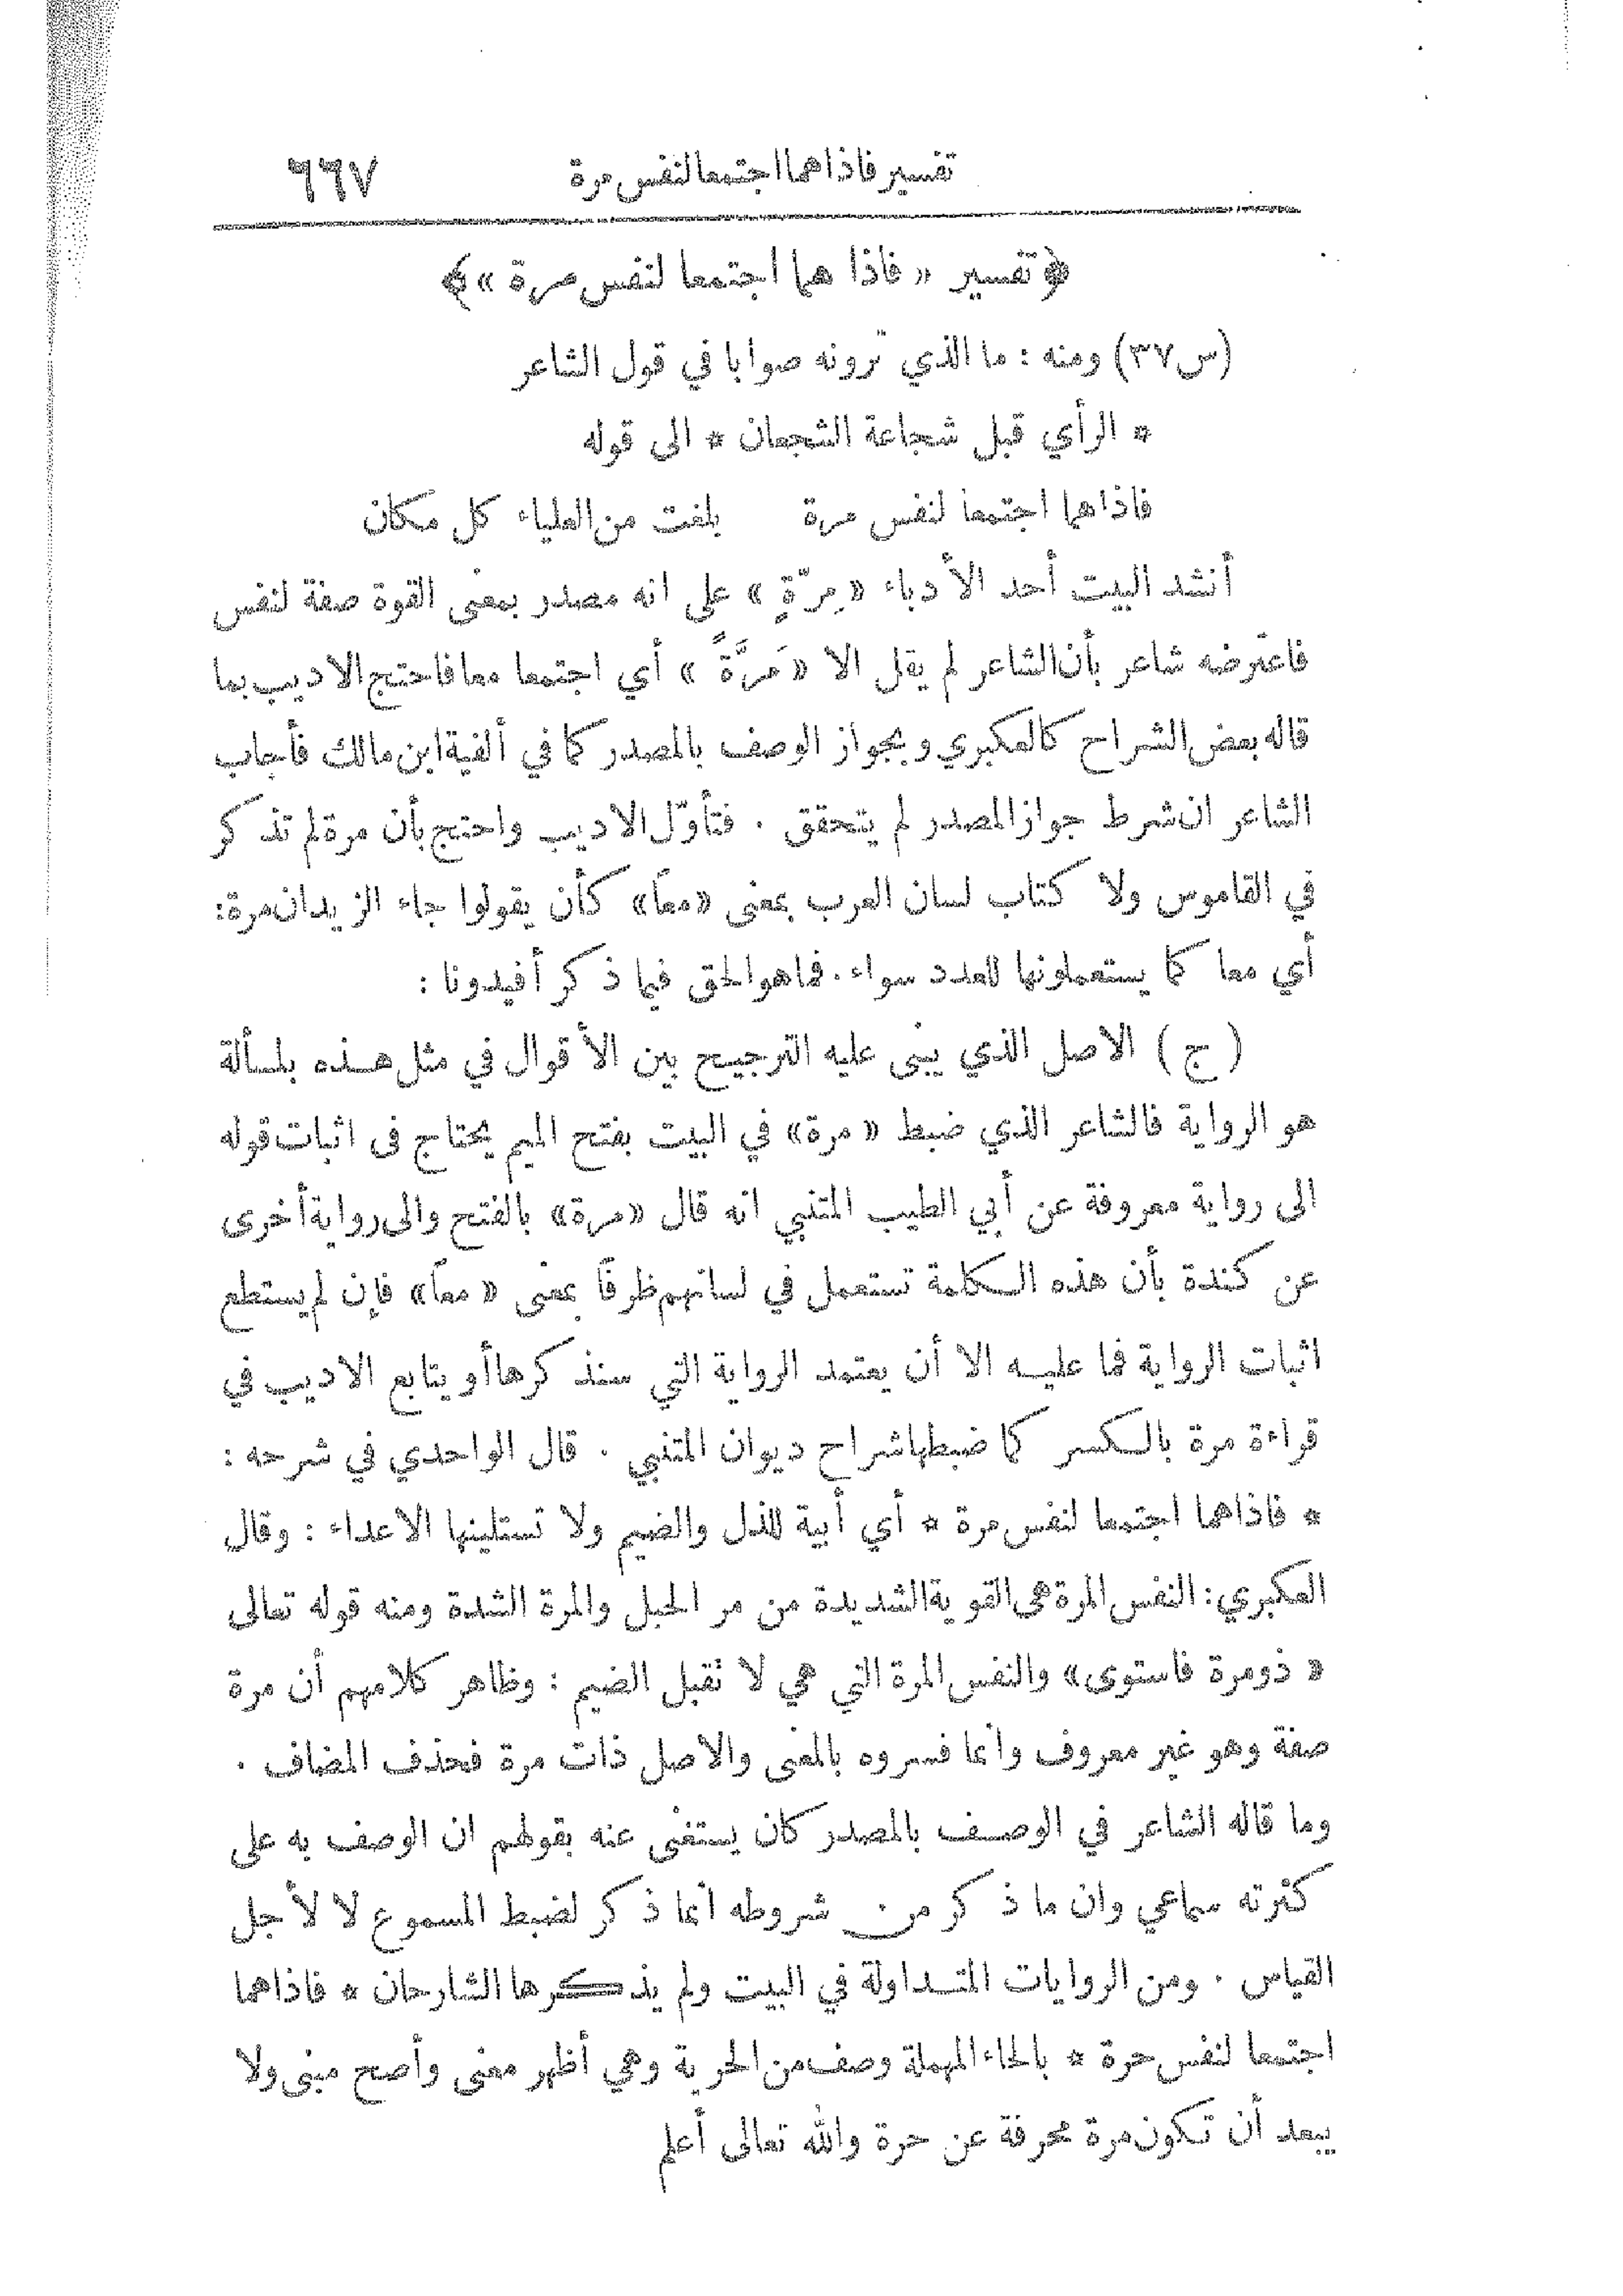 تفسير فاذا هما اجتمعا لنفس مرة ٦٦٧
﴿ تفسير « فاذا هما اجتمعا لنفس مرة » ﴾
(س٣٧) ومنه : ما الذي ترونه صوابا في قول الشاعر
* الرأي قبل شجاعة الشجعان * الى قوله
فاذا هما اجتمعا لنفس مرة بلغت من العلياء كل مكان
أنشد البيت أحد الأدباء « مِرّةٍ » على انه مصدر بمعنى القوة صفة لنفس
فاعترضه شاعر بأن الشاعر لم يقل الا « مَرَّةً » أي اجتمعا معا فاحتج الاديب بما
قاله بعض الشراح كالعكبري وبجواز الوصف بالمصدر كما في ألفية ابن مالك فأجاب
الشاعر ان شرط جواز المصدر لم يتحقق . فتأوّل الاديب واحتج بأن مرة لم تذكر
في القاموس ولا كتاب لسان العرب بمعنى «معاً» كأن يقولوا جاء الزيدان مرة:
أي معا كما يستعملونها للعدد سواء . فما هو الحق فيما ذكر أفيدونا :
( ج ) الاصل الذي يبنى عليه الترجيح بين الأقوال في مثل هذه بلسألة
هو الرواية فالشاعر الذي ضبط « مرة» في البيت بفتح الميم يحتاج في اثبات قوله
الى رواية معروفة عن أبي الطيب المتنبي انه قال «مرة» بالفتح والى رواية أخرى
عن كندة بأن هذه الكلمة تستعمل في لسانهم ظرفاً بمعنى « معاً» فإن لم يستطع
اثبات الرواية فما عليه الا أن يعتمد الرواية التي سنذكرها أو يتابع الاديب في
قراءة مرة بالكسر كما ضبطها شراح ديوان المتنبي . قال الواحدي في شرحه :
* فاذا هما اجتمعا لنفس مرة * أي أبية للذل والضيم ولا تستلينها الاعداء : وقال
العكبري: النفس المرة هى القوية الشديدة من مر الحبل والمرة الشدة ومنه قوله تعالى
« ذو مرة فاستوى» والنفس المرة التي هي لا تقبل الضيم : وظاهر كلامهم أن مرة
صفة وهو غير معروف وانما فسروه بالمعنى والاصل ذات مرة فحذف المضاف .
وما قاله الشاعر في الوصف بالمصدر كان يستغنى عنه بقولهم ان الوصف به على
كثرته سماعي وان ما ذكر من شروطه انما ذكر لضبط المسموع لا لأجل
القياس . ومن الروايات المتداولة في البيت ولم يذكرها الشارحان * فاذا هما
اجتمعا لنفس حرة * بالحاء المهملة وصف من الحرية وهي أظهر معنى وأصح مبنى ولا
يبعد أن تكون مرة محرفة عن حرة والله تعالى أعلم